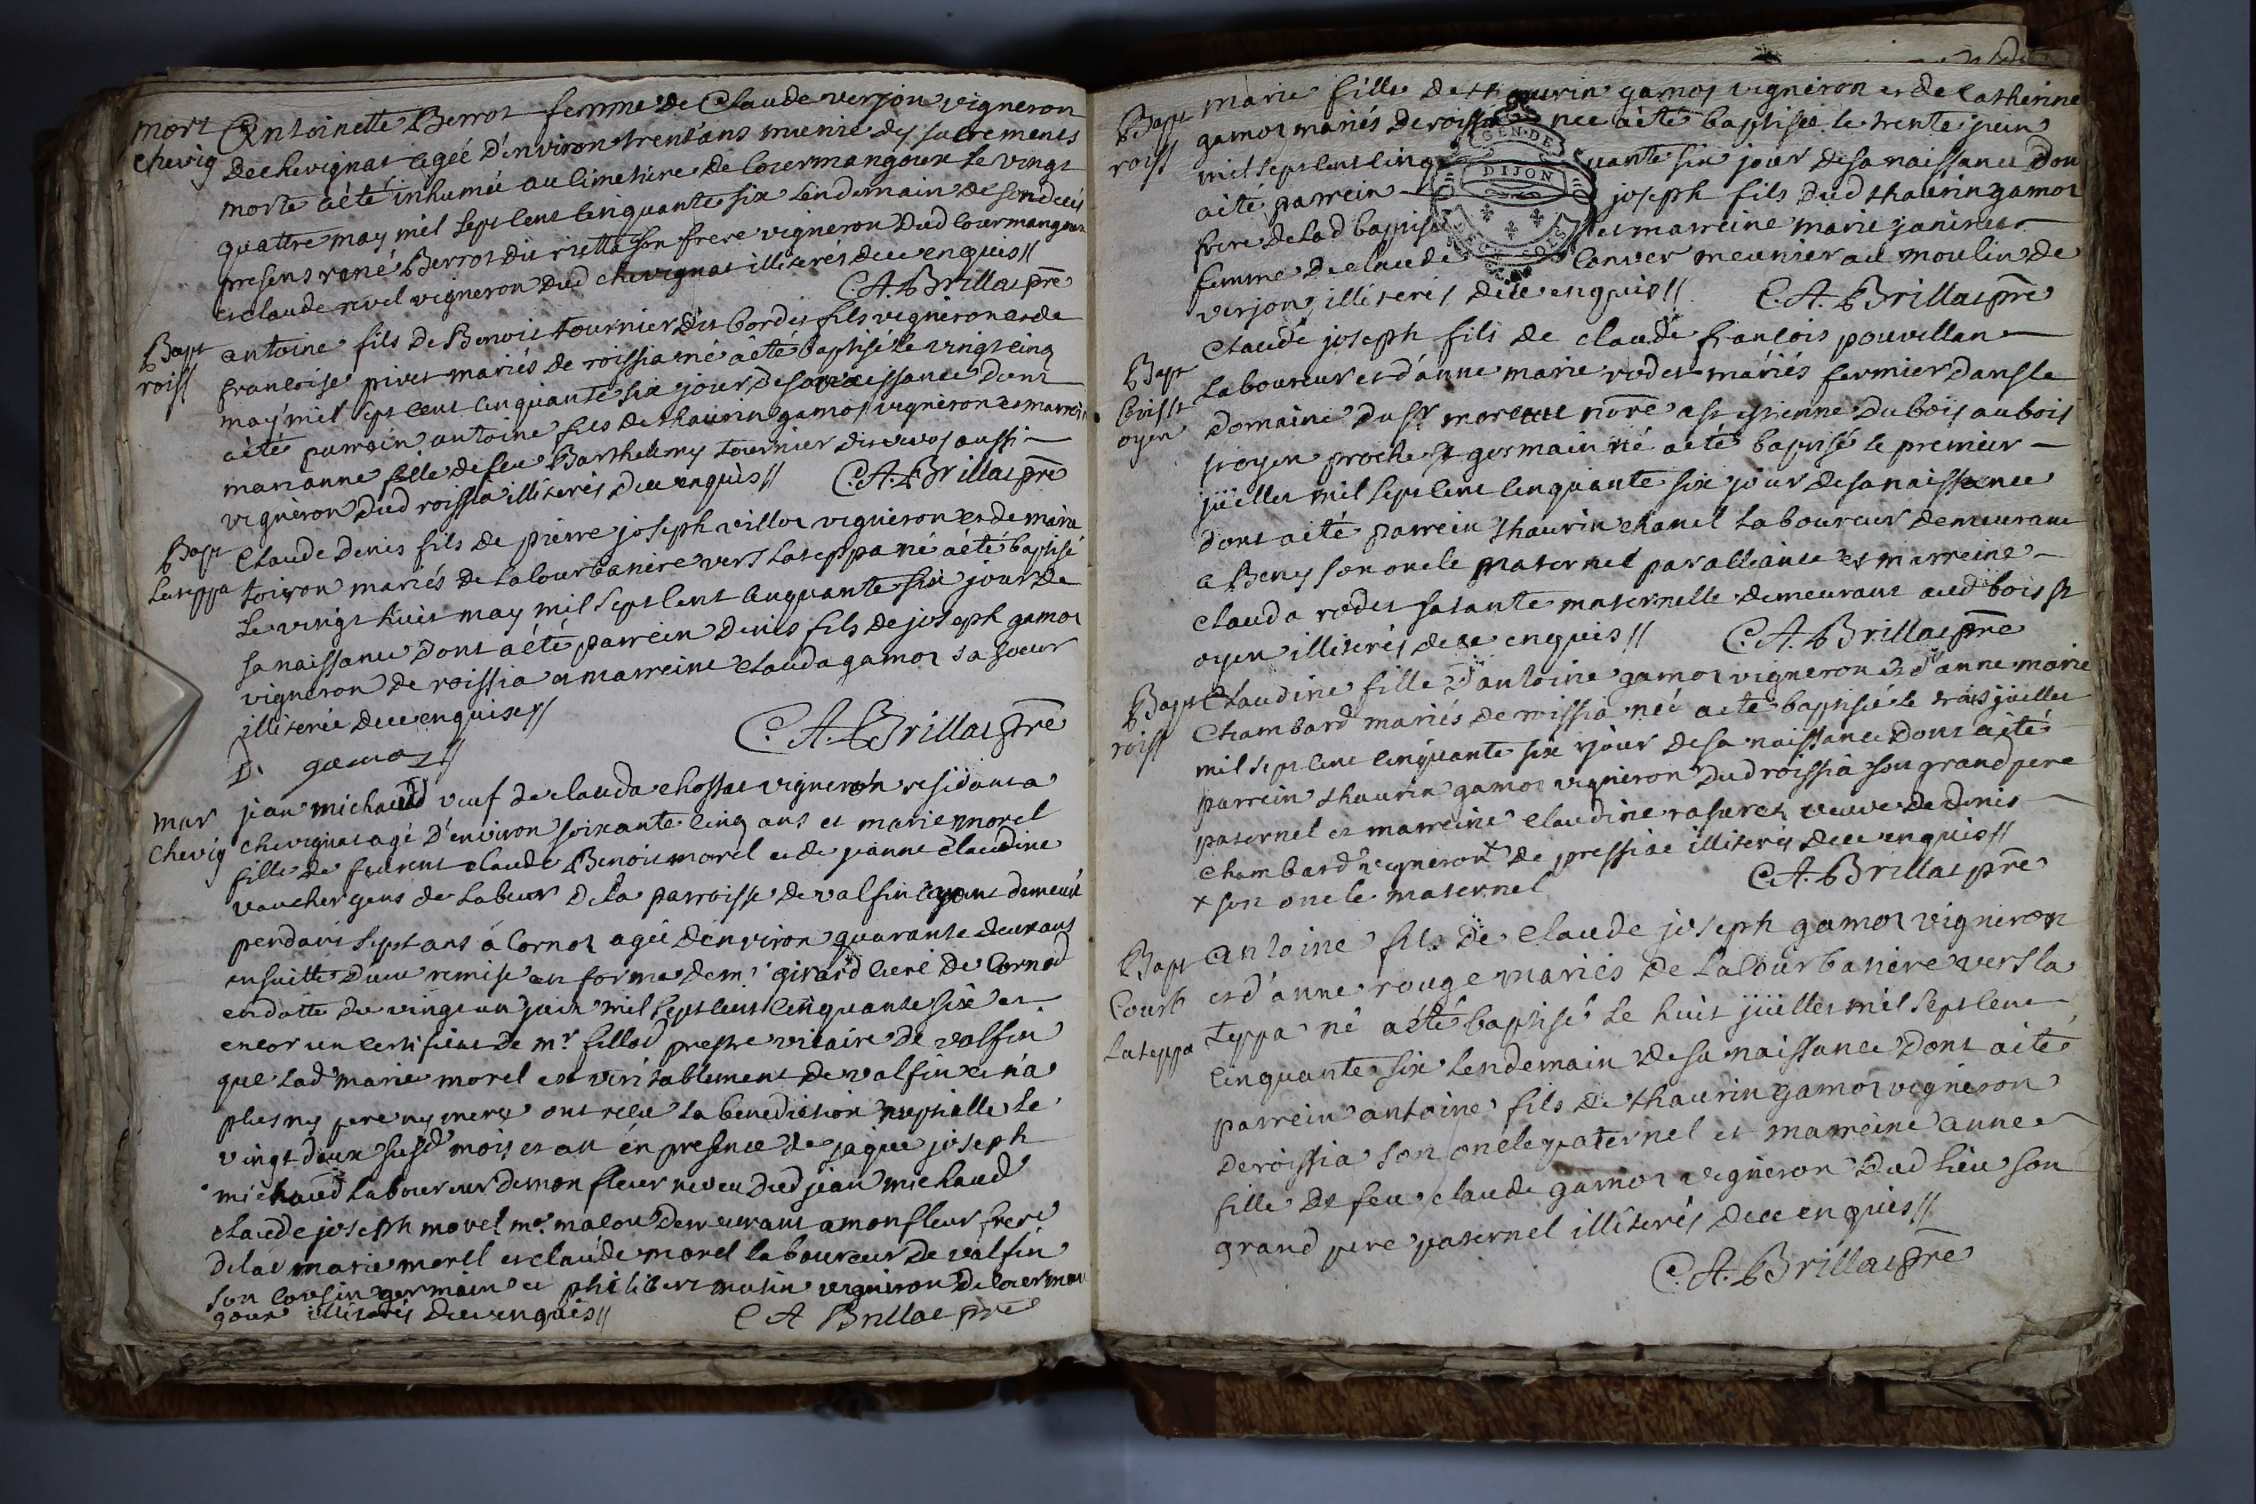 mort Antoinette Berrot femme de Claude verjon vigneron
chevig de chevignat agée d'environ trent'ans munie des sacrements
morte a été inhumée au cimetiere de coermangoux le vingt
quattre may mil sept cent cinquante six lendemain de son deces
presens rené Berrot dit riette son frere vigneron dud coermangoux
et claude revel vigneron dud chevignat illiterés de ce enquis //
C. A. Brillat pre
Bapt antoine fils de Benoit tournier dit bordet fils vigneron et de
roiss francoise pivet mariés de roissia né a été baptisé le vingt cinq
may mil sept cent cinquante six jour de sa naissance dont
a été parrein antoine fils de thaurin gamot vigneron et marreine
marianne fille de feu Barthelemy tournier aussi
vigneron dud roissia illiterés de ce enquis // C. A. Brillat pre
Bapt Claude Denis fils de pierre joseph villot vigneron et de marie
lateppa toiron mariés de lacourbaniere vers lateppa né a été baptisé
le vingt huit may mil sept cent cinquante six jour de
sa naissance dont a été parrein denis fils de joseph gamot
vigneron de roissia et marreine clauda gamot sa soeur
illiterée de ce enquise //
D. gamoz //
C. A. Brillat pre
mar jean michaud veuf de clauda chossat vigneron residant a
chevig chevignat agé d'environ soixante cinq ans et marie morel
fille de furent claude Benoit morel et de jeanne claudine
vaucher gens de labeur de la parroisse de valfin ayant demeuré
pendant sept ans á Cornoz agée d'environ quarante deux ans
ensuitte d'une remise en forme de mr girard curé de Cornod
en datte du vingt un juin mil sept cent cinquante six et
encor un certificat de mr fillod prestre vicaire de valfin
que lad marie morel est veritablement de valfin et n'a
plus ny pere ny mere ont reçu la benediction nuptialle le
vingt deux susd mois et an en presence de jaque joseph
michaud laboureur de monfleur neveu dud jean michaud
claude joseph morel me maçon demeurant a monfleur frere
de lad marie morel et claude morel laboureur de valfin
son cousin germain et philibert mutin vigneron de coerman
goux illiterés de ce enquis // C A Brillat pre
Bapt marie fille de thaurin gamot vigneron et de catherine
roiss gamot mariés de roissia née a été baptisée le trente juin
mil sept cent cinquante six jour de sa naissance dont
a été parrein joseph fils dud thaurin gamot
frere de lad baptisée et marreine marie janinet
femme de claude Convers meunier au moulin de
verjon illiterés de ce enquis // C. A. Brillat pre
GEN. DE
DIJON
Bapt Claude joseph fils de claude francois pouvillan
boisst laboureur et d'anne marie rodet mariés fermier dans le
oyen domaine du sr moreau nore a st etienne du bois au bois
st oyen proche st germain né a été baptisé le premier
juillet mil sept cent cinquante six jour de sa naissance
dont a été parrein thaurin chanel laboureur demeurant
a Beny son oncle maternel par alliance et marreine
clauda rodet sa tante maternelle demeurant aud bois st
oyen illiterés de ce enquis // C. A. Brillat pre
Bapt Claudine fille d'antoine gamot vigneron et d'anne marie
roiss Chambard mariés de roissia née a été baptisée le trois juillet
mil sept cent cinquante six jour de sa naissance dont a été
parrein thaurin gamot vigneron dud roissia son grand pere
paternel et marreine claudine rasuret veuve de denis
chambard vigneron x de pressia illiterés de ce enquis //
x son oncle maternel C. A. Brillat pre
Bapt antoine fils de claude joseph gamot vigneron
Courb et d'anne rouge mariés de lacourbaniere vers la
lateppa teppa né a été baptisé le huit juillet mil sept cent
cinquante six lendemain de sa naissance dont a été
parrein antoine fils de thaurin gamot vigneron
de roissia son oncle paternel et marreine anne
fille de feu claude gamot vigneron dud lieu son
grand pere paternel illiterés de ce enquis //
C. A. Brillat pre